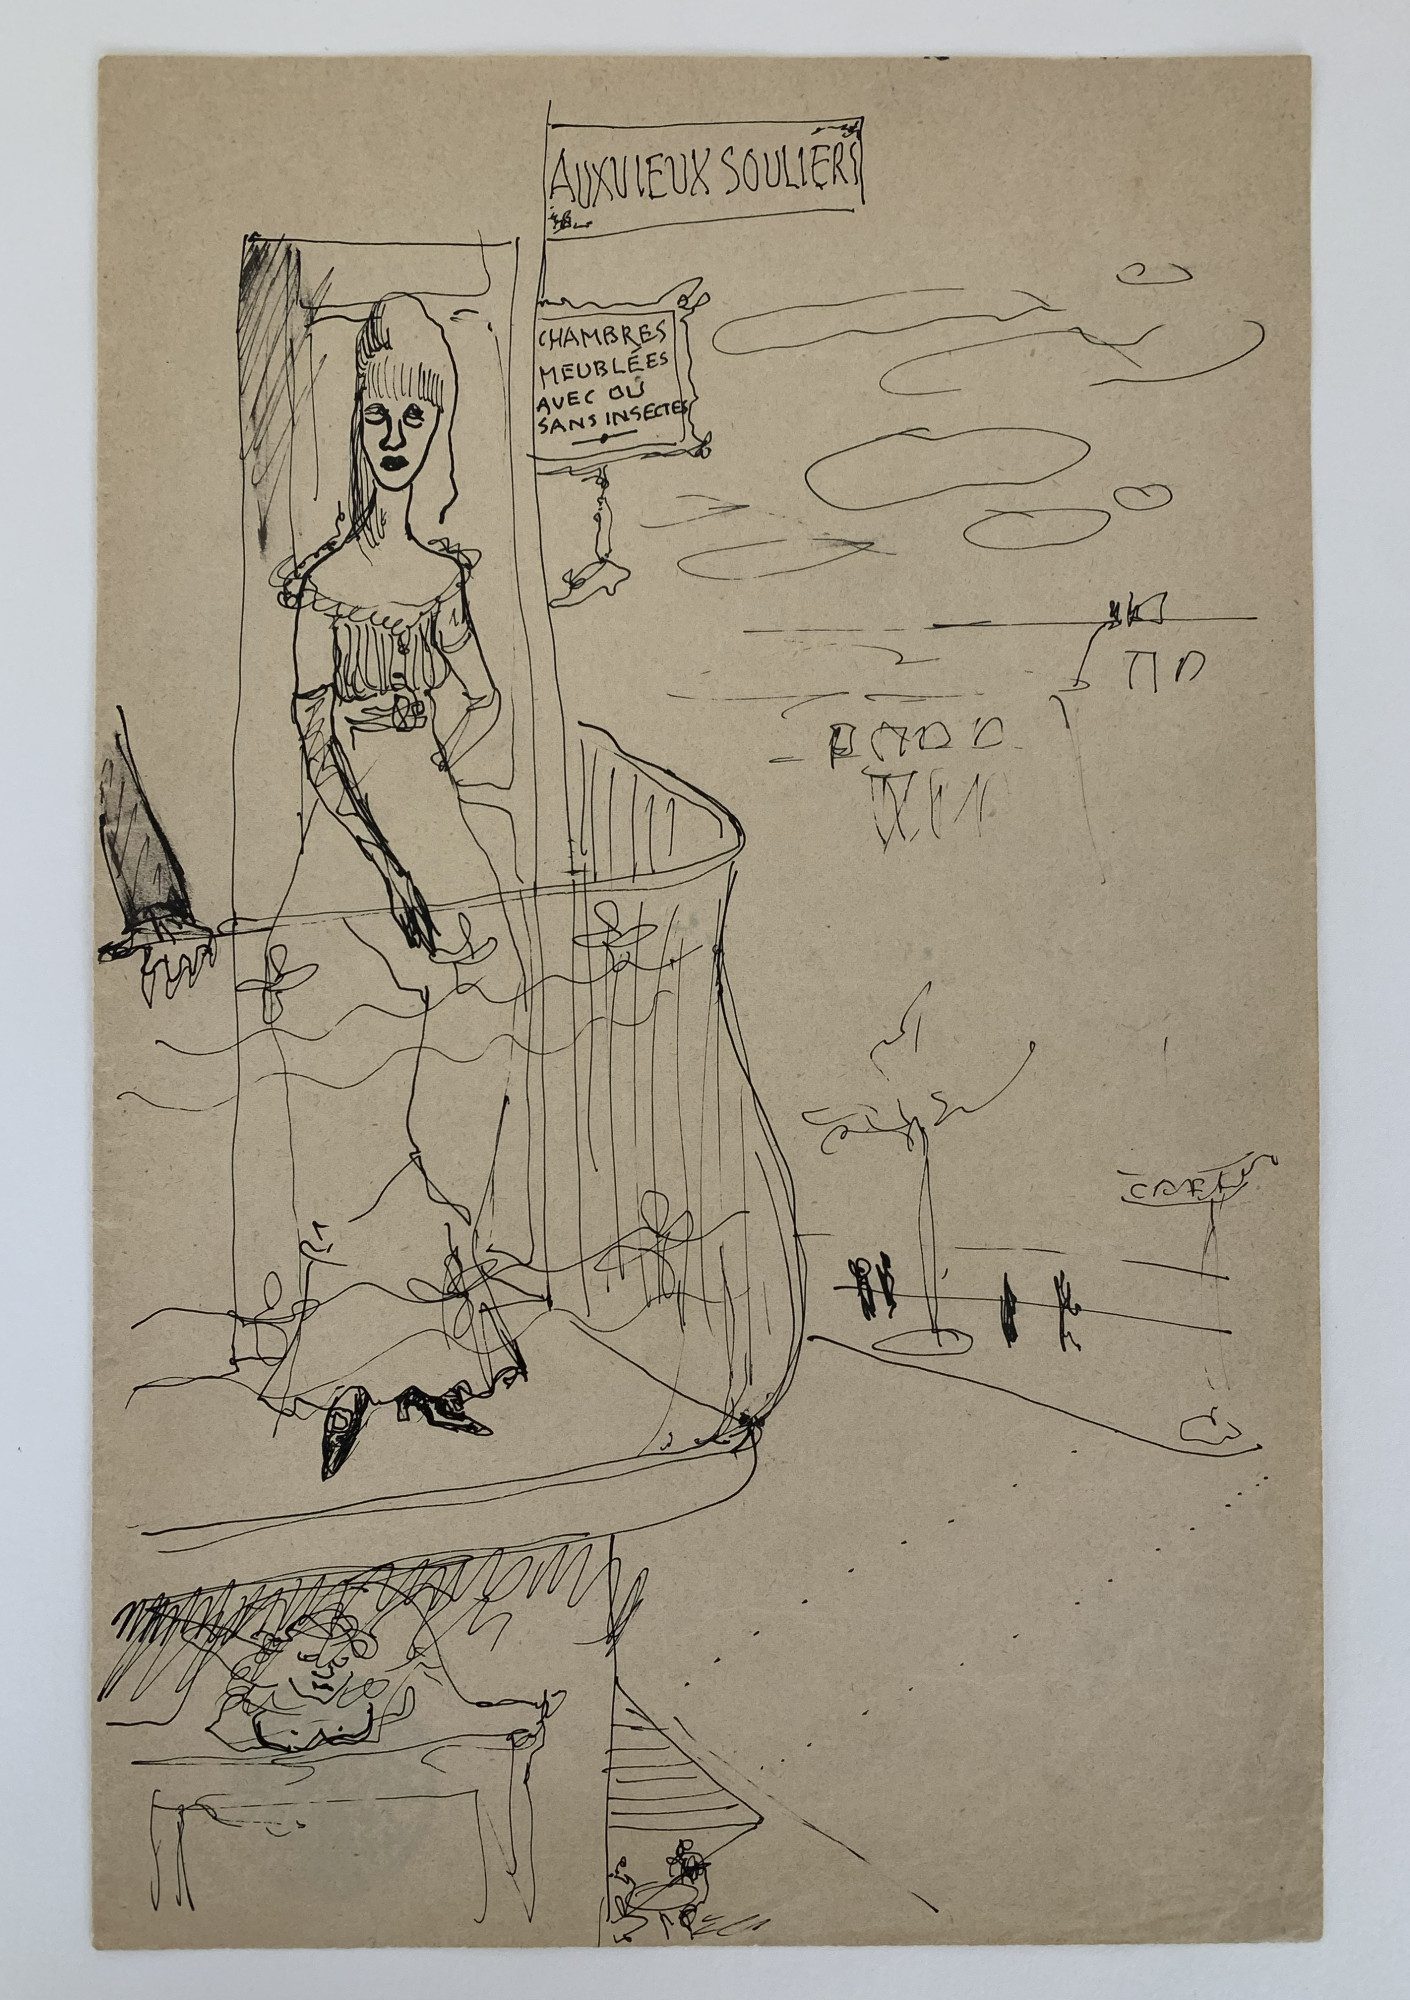 AUX VIEUX SOULIERS
CHAMBRES
MEUBLÉES
AVEC OU
SANS INSECTES